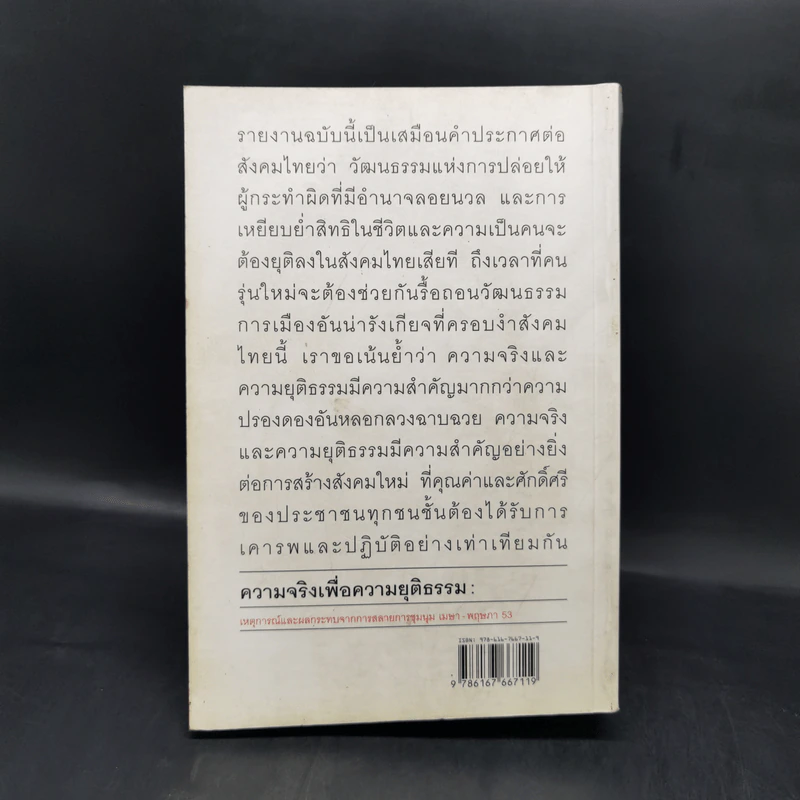 รายงานฉบับนี้เป็นเสมือนคำประกาศต่อ
สังคมไทยว่า วัฒนธรรมแห่งการปล่อยให้
ผู้กระทำผิดที่มีอำนาจลอยนวล และการ
เหยียบย่ำสิทธิในชีวิตและความเป็นคนจะ
ต้องยุติลงในสังคมไทยเสียที ถึงเวลาที่คน
รุ่นใหม่จะต้องช่วยกันรื้อถอนวัฒนธรรม
การเมืองอันน่ารังเกียจที่ครอบงำสังคม
ไทยนี้ เราขอเน้นย้ำว่า ความจริงและ
ความยุติธรรมมีความสำคัญมากกว่าความ
ปรองดองอันหลอกลวงฉาบฉวย ความจริง
และความยุติธรรมมีความสำคัญอย่างยิ่ง
ต่อการสร้างสังคมใหม่ ที่คุณค่าและศักดิ์ศรี
ของประชาชนทุกชนชั้นต้องได้รับการ
เคารพและปฏิบัติอย่างเท่าเทียมกัน
ความจริงเพื่อความยุติธรรม :
เหตุการณ์และผลกระทบจากการสลายการชุมนุม เมษา - พฤษภา 53
ISBN: 978-616-7667-11-9
9 786167 667119